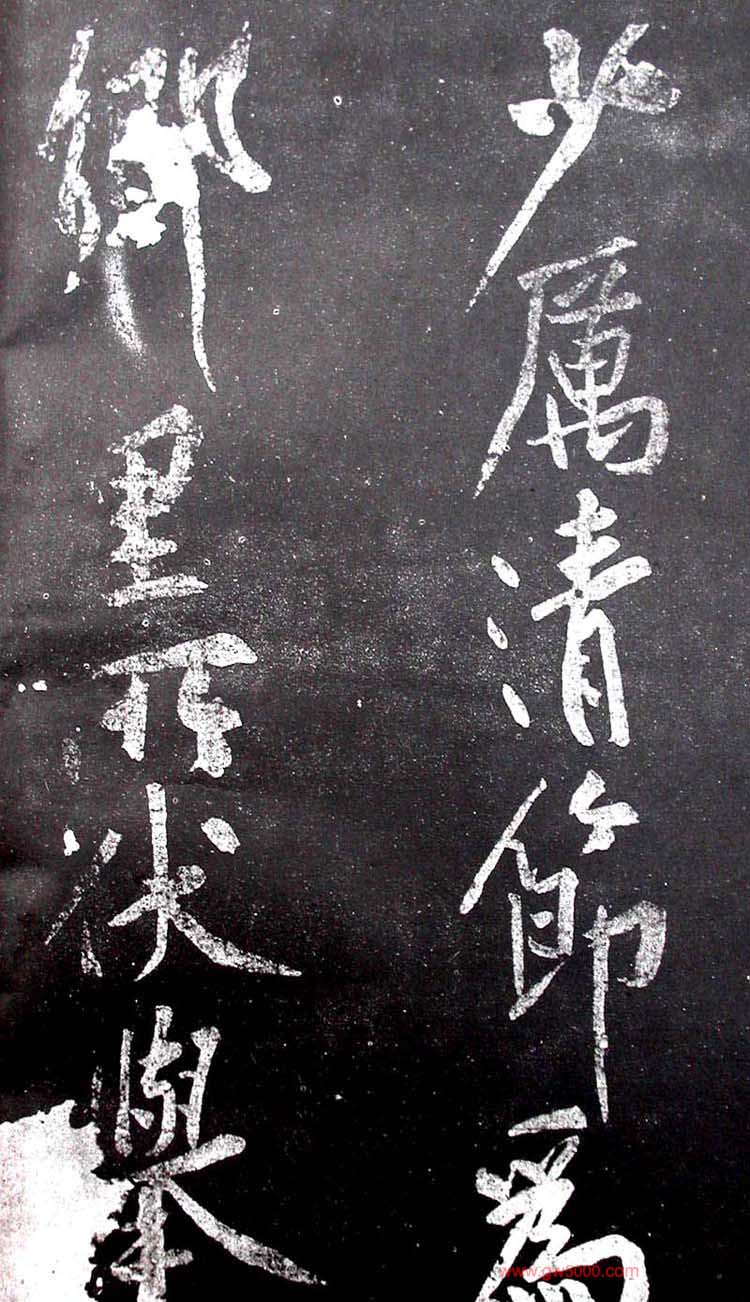 少厲清節為
鄉里所伏舉
www.gw5000.com